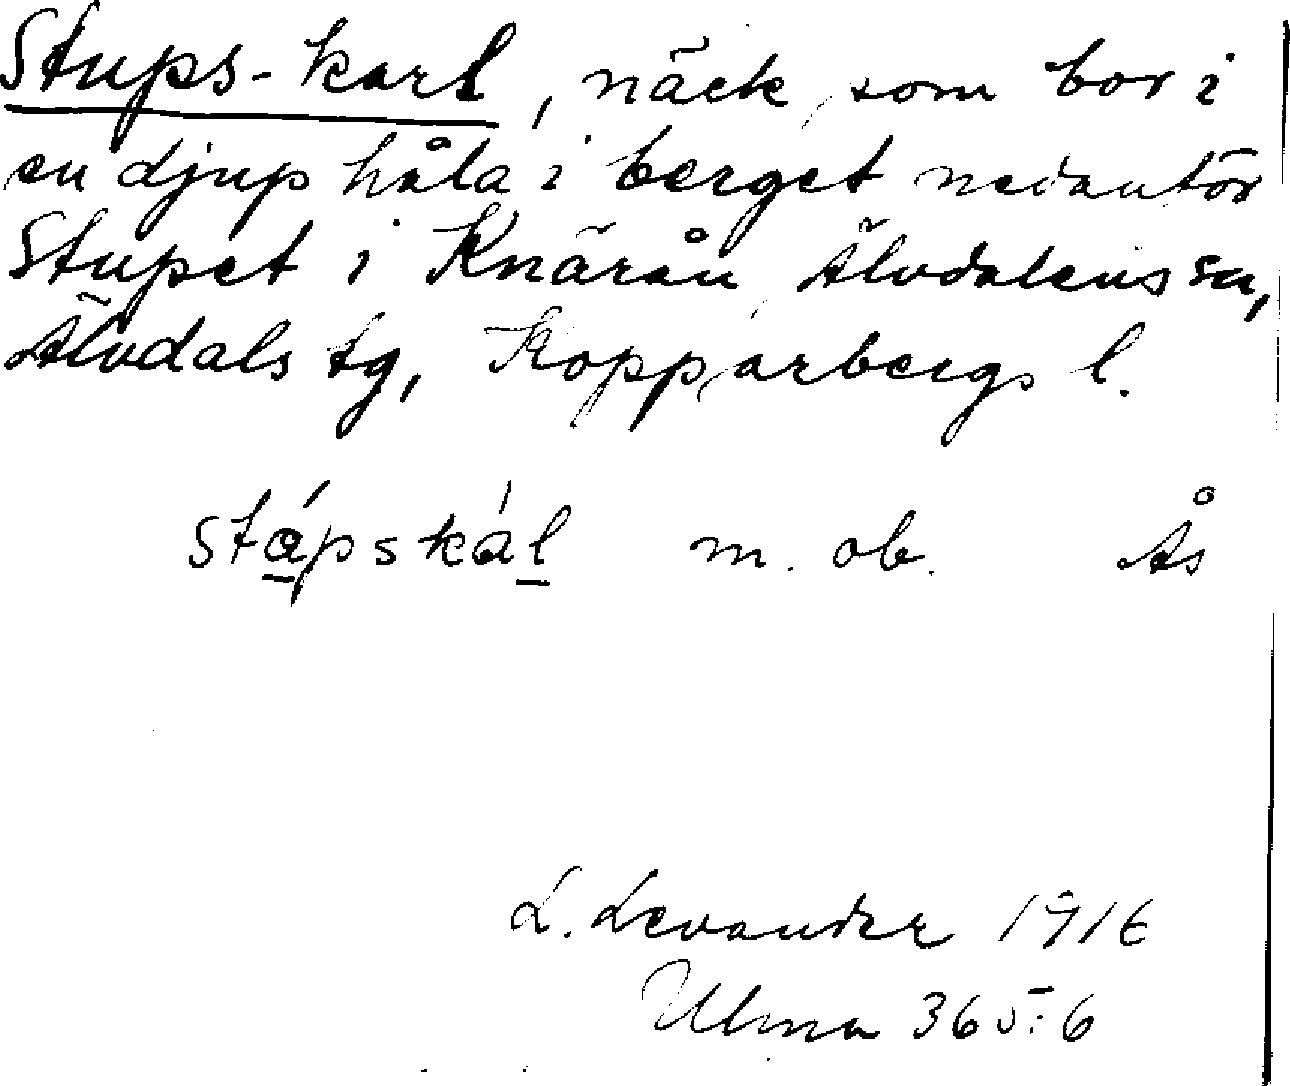 Stups-karl, näck, som bor i
en djup håla i berget nedanför
Stupet i Knärån, Älvdalens sn,
Älvdals tg, Kopparbergs l.
stápskál m. ob. Ås
L. Levander 1916
Ulma 365:6